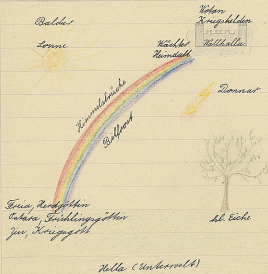 Balder
Sonne
Wotan
Kriegshelden
Wallhalla
Wächter
Heimdall
Himmelsbrücke
Donnar
Freia, Herdgöttin
Ostara, Frühlingsgöttin
Ziu, Kriegsgott
hl. Eiche
Hella (Unterwelt)